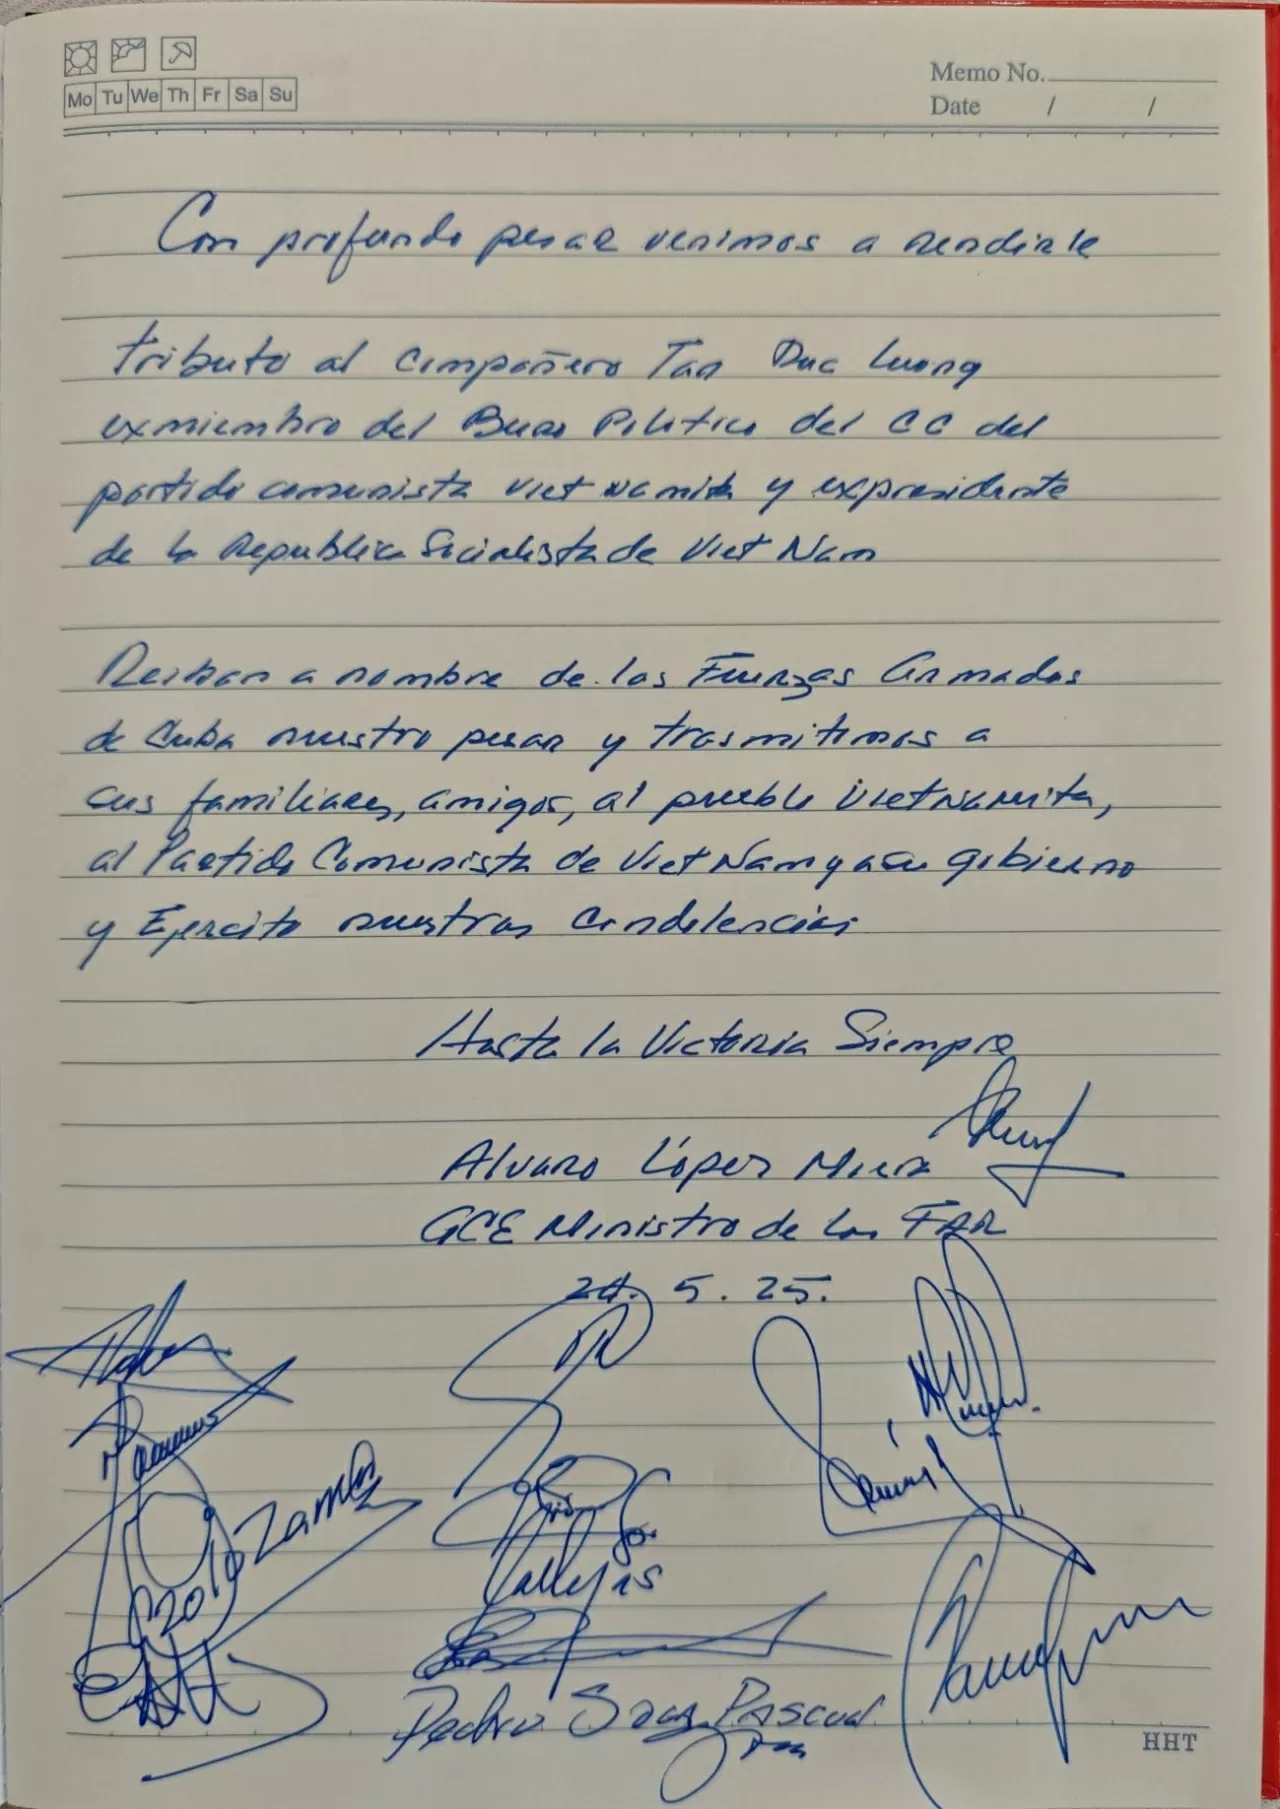 Mo Tu We Th Fr Sa Su
Memo No.
Date / /
Con profundo pesar venimos a rendirle
tributo al compañero Tan Duc Luong
exmiembro del Buro Politico del CC del
partido comunista viet namita y expresidente
de la Republica Socialista de Viet Nam
Reciban a nombre de las Fuerzas Armadas
de Cuba nuestro pesar y trasmitimos a
sus familiares, amigos, al pueblo vietnamita,
al Partido Comunista de Viet Nam y a su gobierno
y Ejercito nuestras condolencias
Hasta la Victoria Siempre
Alvaro López Miera
GCE Ministro de las FAR
24. 5. 25.
Zamo
Callejas
Pedro Sacz Pascual
HHT